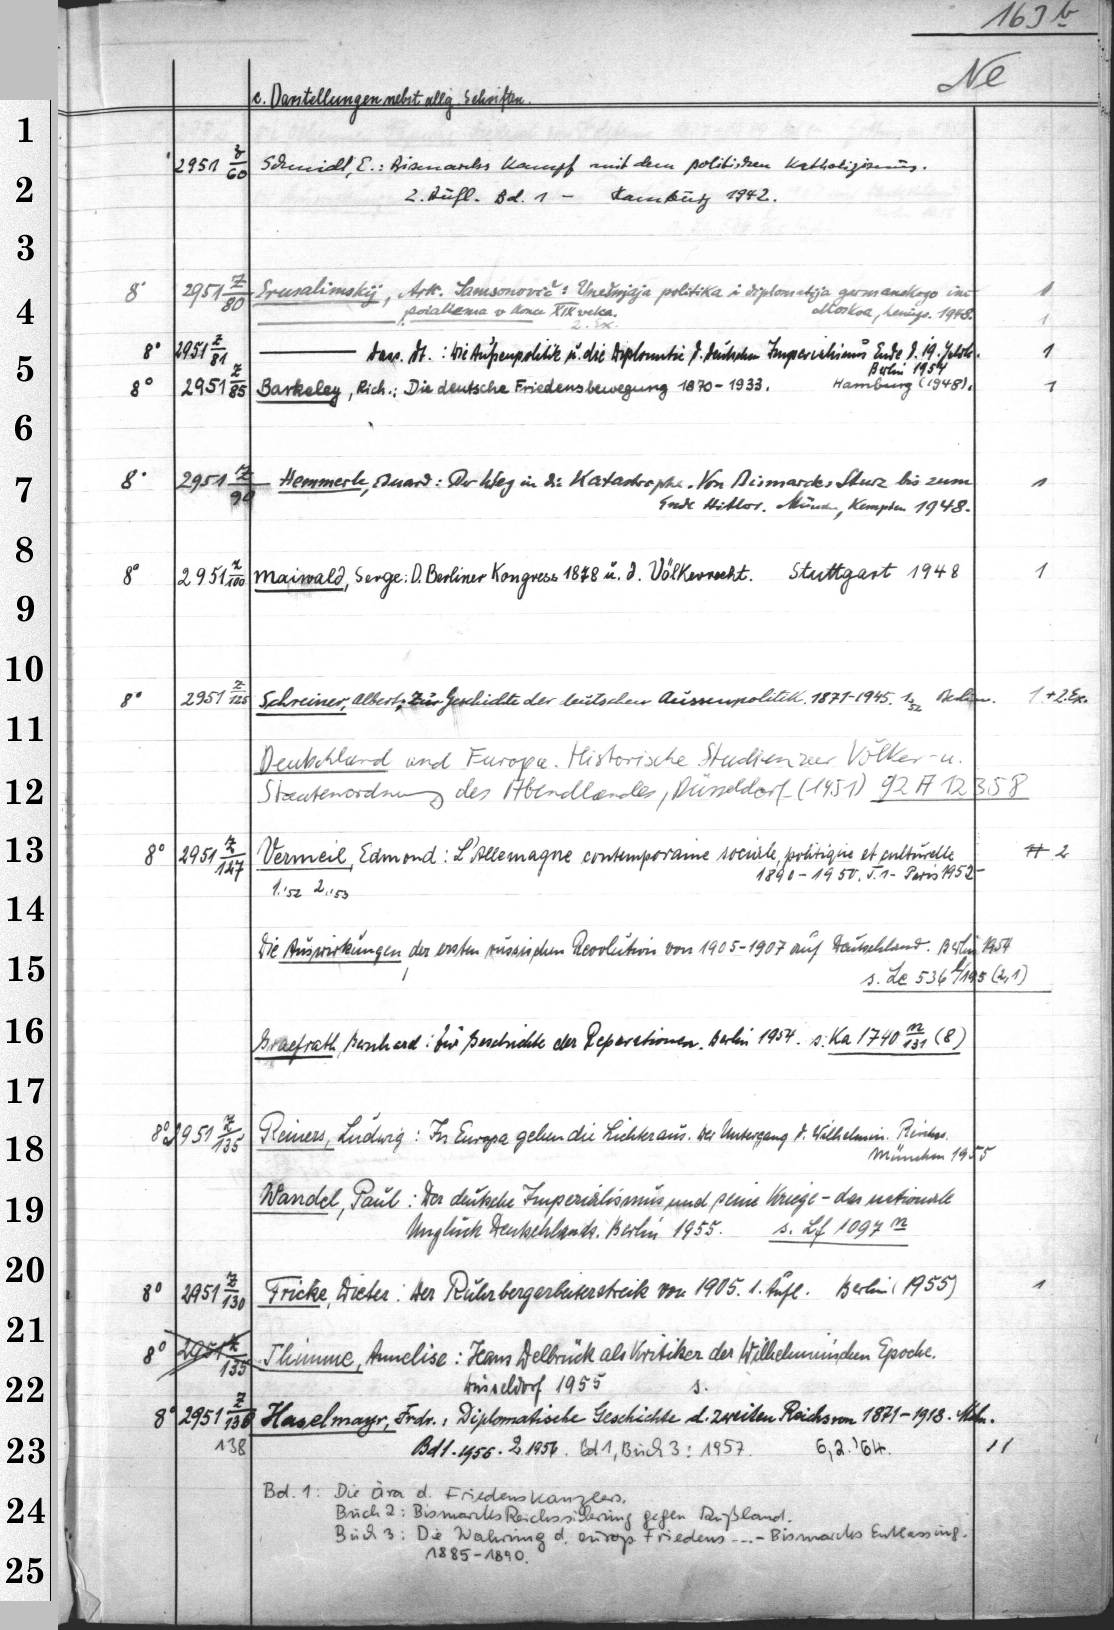 163 b
Ne
c. Darstellungen nebst allg. Schriften.
1
2951 z/60 Schmidt, E.: Bismarcks Kampf mit dem politischen Katholizismus.
2
2. Aufl. Bd. 1 – Hamburg 1942.
3
8° 2951 z/80 Erusalimskij, Ark. Samsonovič: Vnešnjaja politika i diplomatija germanskogo im- 1
4
perializma v konce XIX veka. Moskva, Leningr. 1948. 1
2. Ex.
8° 2951 z/81 ——— Dass. dt.: Die Außenpolitik u. die Diplomatie d. deutschen Imperialismus Ende d. 19. Jahrh. 1
5
Berlin 1954
8° 2951 z/85 Barkeley, Rich.: Die deutsche Friedensbewegung 1870–1933. Hamburg (1948). 1
6
7
8° 2951 z/90 Hemmerle, Eduard: Der Weg in die Katastrophe. Von Bismarcks Sturz bis zum 1
Ende Hitlers. Münch., Kempten 1948.
8
8° 2951 z/100 Maiwald, Serge: D. Berliner Kongress 1878 u. d. Völkerrecht. Stuttgart 1948 1
9
10
8° 2951 z/125 Schreiner, Albert: Zur Geschichte der deutschen Aussenpolitik. 1871–1945. 1. 52 Berlin. 1 + 2. Ex.
11
Deutschland und Europa. Historische Studien zur Völker- u.
12
Staatenordnung des Abendlandes, Düsseldorf (1951) 92 A 12358
13
8° 2951 z/127 Vermeil, Edmond: L'Allemagne contemporaine sociale, politique et culturelle 2
1890–1950. T. 1– Paris 1952–
1.'52 2.'53
14
Die Auswirkungen der ersten russischen Revolution von 1905–1907 auf Deutschland. Berlin 1954
15
s. Le 536 l/195 (2,1)
16
Graefrath, Bernhard: Zur Geschichte der Reparationen. Berlin 1954. s. Ka 1740 n/131 (8)
17
8° 2951 z/135 Reiners, Ludwig: In Europa gehen die Lichter aus. Der Untergang d. Wilhelmin. Reiches.
18
München 1955
Wandel, Paul: Der deutsche Imperialismus und seine Kriege – das nationale
19
Unglück Deutschlands. Berlin 1955. s. Lf 1097 n
20
8° 2951 z/130 Fricke, Dieter: Der Ruhrbergarbeiterstreik von 1905. 1. Aufl. Berlin (1955) 1
21
8° 2951 z/135 Thimme, Annelise: Hans Delbrück als Kritiker der Wilhelminischen Epoche.
22
Düsseldorf 1955 s.
8° 2951 z/138 Haselmayr, Frdr.: Diplomatische Geschichte d. zweiten Reichs von 1871–1918. Mchn.
23
138 Bd 1. 1955. 2. 1956. Bd 1, Buch 3: 1957. 6,2.'64. 11
Bd. 1: Die Ära d. Friedenskanzlers.
24
Buch 2: Bismarcks Reichssicherung gegen Rußland.
Buch 3: Die Wahrung d. europ Friedens ... – Bismarcks Entlassung.
25
1885–1890.